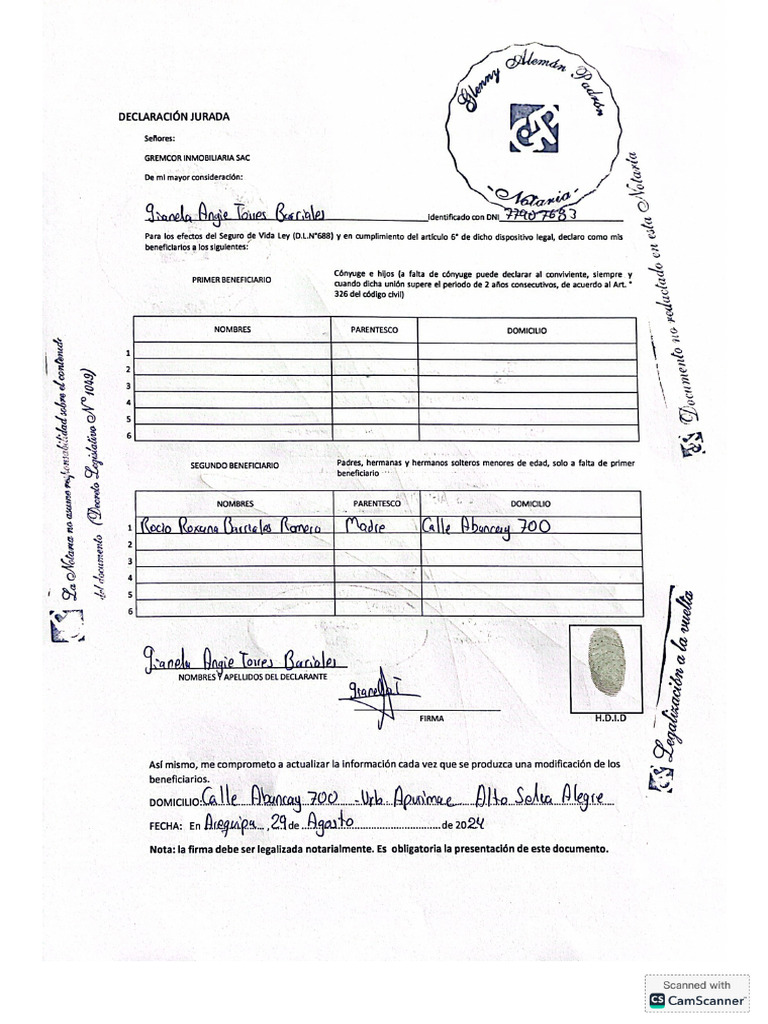 Glenny Alemán Padrón
- Notaria -
DECLARACIÓN JURADA
Señores:
GREMCOR INMOBILIARIA SAC
De mi mayor consideración:
Gianela Angie Torres Barriales Identificado con DNI 77907683
Para los efectos del Seguro de Vida Ley (D.L.N°688) y en cumplimiento del artículo 6° de dicho dispositivo legal, declaro como mis
beneficiarios a los siguientes:
PRIMER BENEFICIARIO
Cónyuge e hijos (a falta de cónyuge puede declarar al conviviente, siempre y
cuando dicha unión supere el periodo de 2 años consecutivos, de acuerdo al Art. °
326 del código civil)
NOMBRES PARENTESCO DOMICILIO
1
2
3
4
5
6
SEGUNDO BENEFICIARIO
Padres, hermanas y hermanos solteros menores de edad, solo a falta de primer
beneficiario
NOMBRES PARENTESCO DOMICILIO
1 Rocio Roxana Barriales Romero Madre Calle Abancay 700
2
3
4
5
6
Gianela Angie Torres Barriales
NOMBRES Y APELLIDOS DEL DECLARANTE
Gianella T
FIRMA
H.D.I.D
Así mismo, me comprometo a actualizar la información cada vez que se produzca una modificación de los
beneficiarios.
DOMICILIO: Calle Abancay 700 - Urb. Apurimac Alto Selva Alegre
FECHA: En Arequipa, 29 de Agosto de 2024
Nota: la firma debe ser legalizada notarialmente. Es obligatoria la presentación de este documento.
La Notaria no asume responsabilidad sobre el contenido
del documento (Decreto Legislativo N° 1049)
Documento no redactado en esta Notaría
Legalización a la vuelta
Scanned with
CS CamScanner